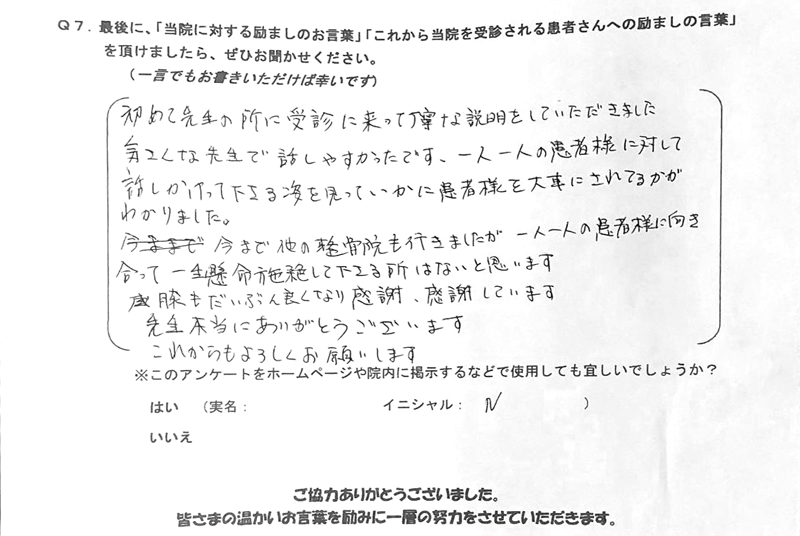 Q7. 最後に、「当院に対する励ましのお言葉」「これから当院を受診される患者さんへの励ましの言葉」
を頂けましたら、ぜひお聞かせください。
(一言でもお書きいただけば幸いです)
初めて先生の所に受診に来って丁寧な説明をしていただきました
気さくな先生で話しやすかったです、一人一人の患者様に対して
話しかけって下さる姿を見っていかに患者様を大事にされてるかが
わかりました。
今まで他の整骨院も行きましたが一人一人の患者様に向き
合って一生懸命施術して下さる所はないと思います
膝もだいぶん良くなり感謝、感謝しています
先生本当にありがとうございます
これからもよろしくお願いします
※このアンケートをホームページや院内に掲示するなどで使用しても宜しいでしょうか?
はい (実名: イニシャル: N )
いいえ
ご協力ありがとうございました。
皆さまの温かいお言葉を励みに一層の努力をさせていただきます。